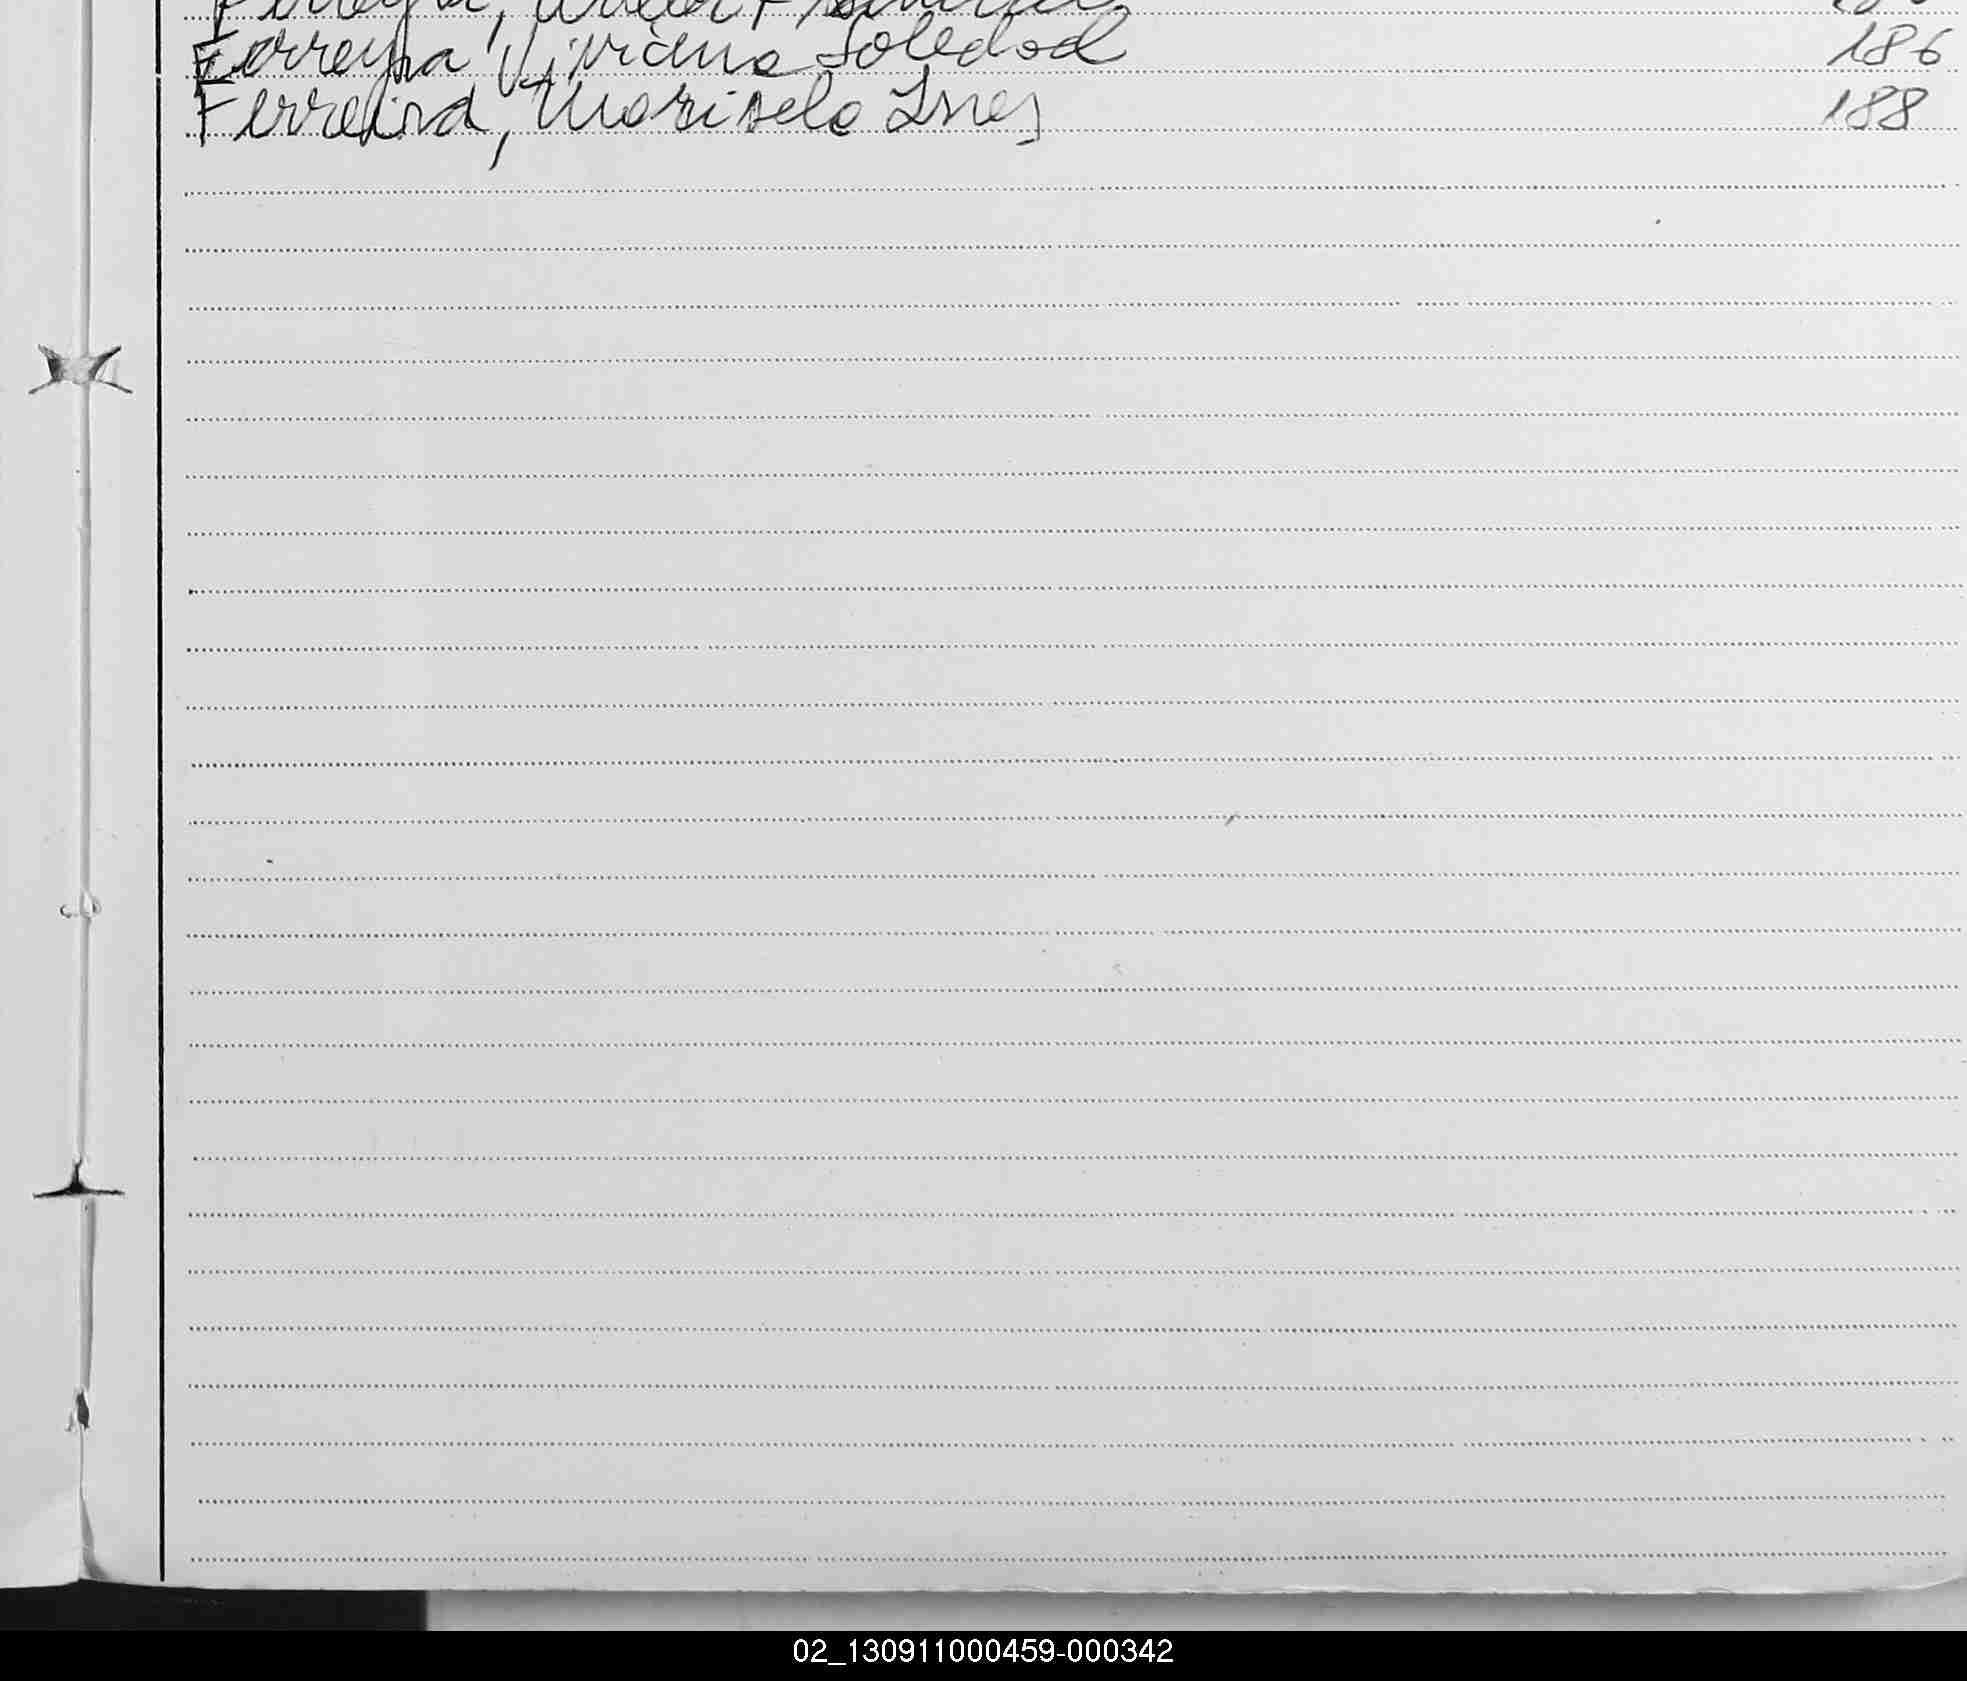 Ferreyra Viviana Soledad 186
Ferreira, Marisela Ines 188
02_130911000459-000342